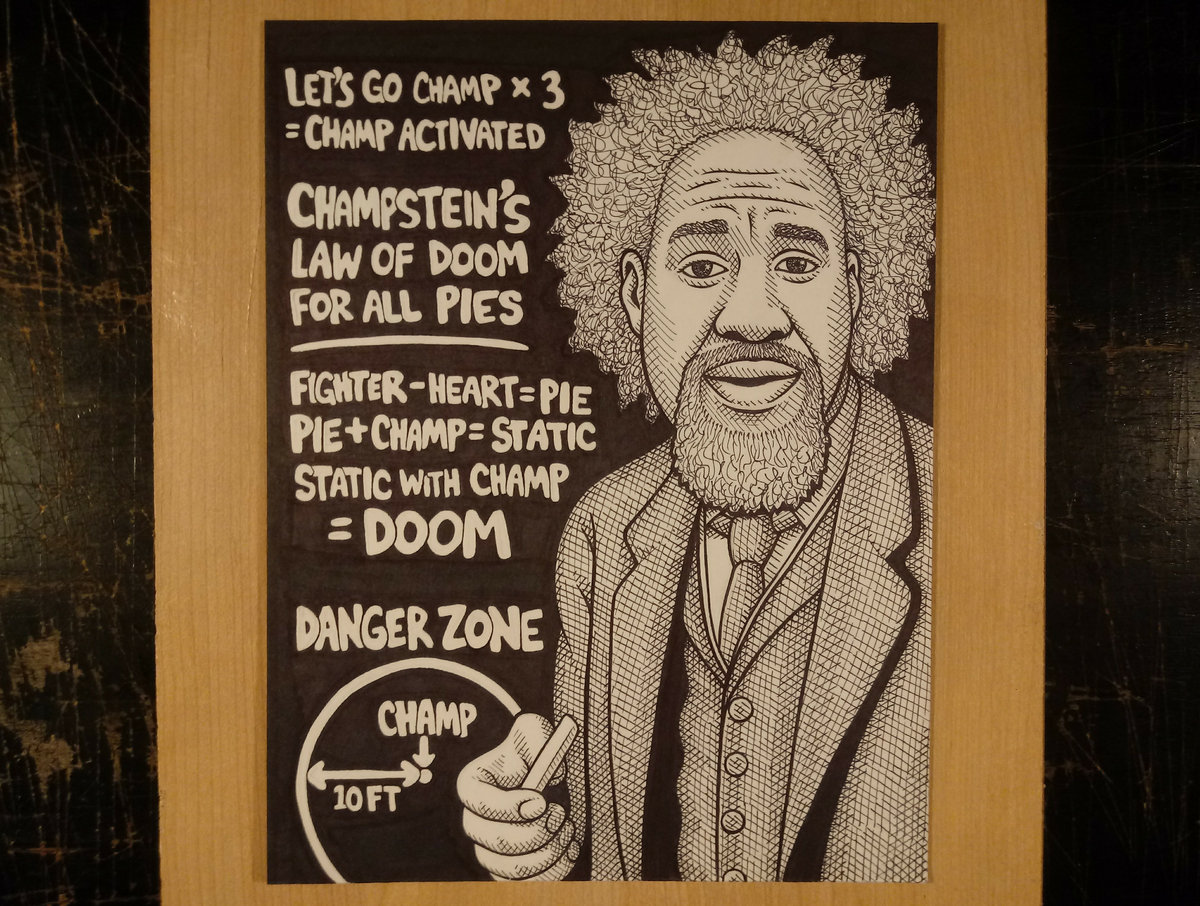 LET'S GO CHAMP × 3
= CHAMP ACTIVATED
CHAMPSTEIN'S
LAW OF DOOM
FOR ALL PIES
FIGHTER - HEART = PIE
PIE + CHAMP = STATIC
STATIC WITH CHAMP
= DOOM
DANGER ZONE
CHAMP
10 FT